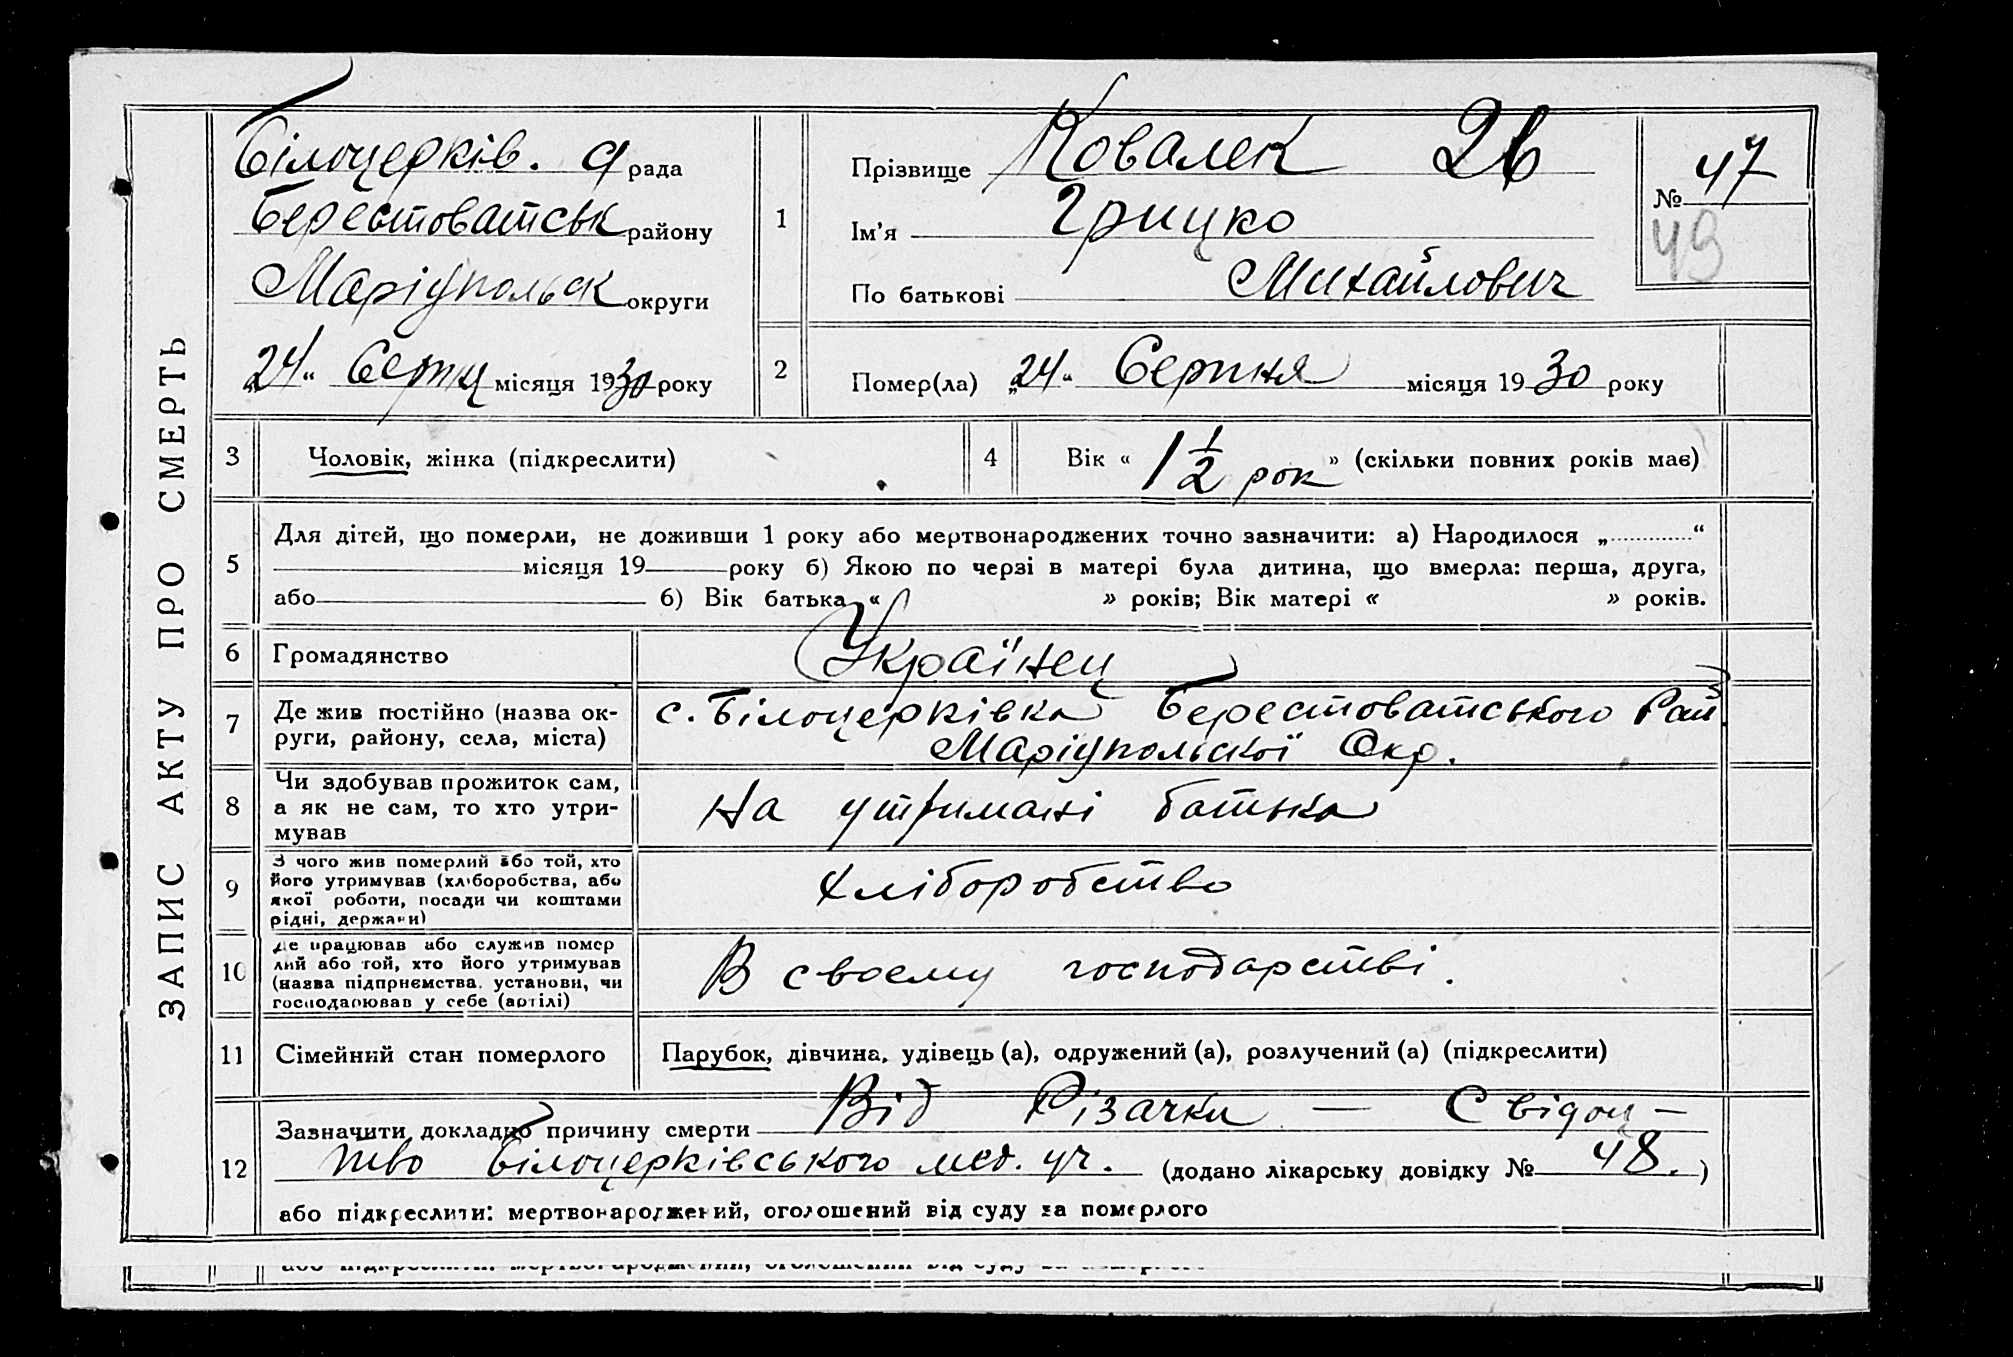 ЗАПИС АКТУ ПРО СМЕРТЬ
Білоцерків. рада
Берестоватськ району
Маріупольск округи
„24“ Серпц місяця 1930 року
1
Прізвище Ковалек 26
Ім’я Грицко
По батькові Михайлович
№ 47
49
2
Помер(ла) „24“ Серпня місяця 1930 року
3 Чоловік, жінка (підкреслити)
4 Вік « 1 ½ рок » (скільки повних років має)
5
Для дітей, що померли, не доживши 1 року або мертвонароджених точно зазначити: а) Народилося „ “
місяця 19 року б) Якою по черзі в матері була дитина, що вмерла: перша, друга,
або б) Вік батька « » років; Вік матері « » років.
6 Громадянство Українец
7 Де жив постійно (назва ок-
руги, району, села, міста)
с. Білоцерківка Берестоватського Рай.
Маріупольскої Окр.
8 Чи здобував прожиток сам,
а як не сам, то хто утри-
мував
На утримані батька
9 З чого жив померлий або той, хто
його утримував (хліборобства, або
якої роботи, посади чи коштами
рідні, держави)
Хліборобство
10 Де працював або служив помер
лий або той, хто його утримував
(назва підприємства, установи, чи
господарював у себе (артілі)
В своему господарстві.
11 Сімейний стан померлого Парубок, дівчина, удівець (а), одружений (а), розлучений (а) (підкреслити)
12
Зазначити докладно причину смерти Від Різачки — Свідоц-
тво Білоцерківського мед. уч. (додано лікарську довідку № 48.)
або підкреслити: мертвонароджений, оголошений від суду за померлого
або підкреслити: мертвонароджений, оголошений від суду за померлого